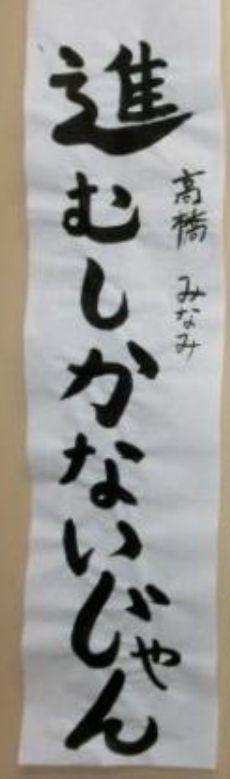 高橋 みなみ
進むしかないじゃん